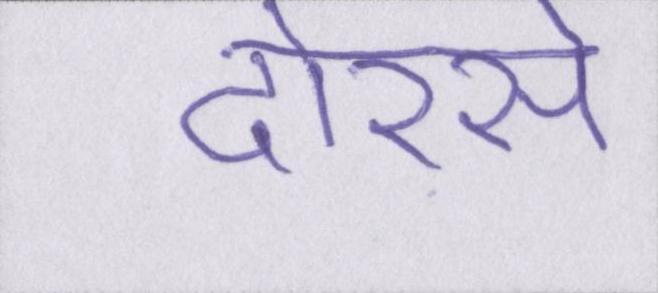 दोरसे